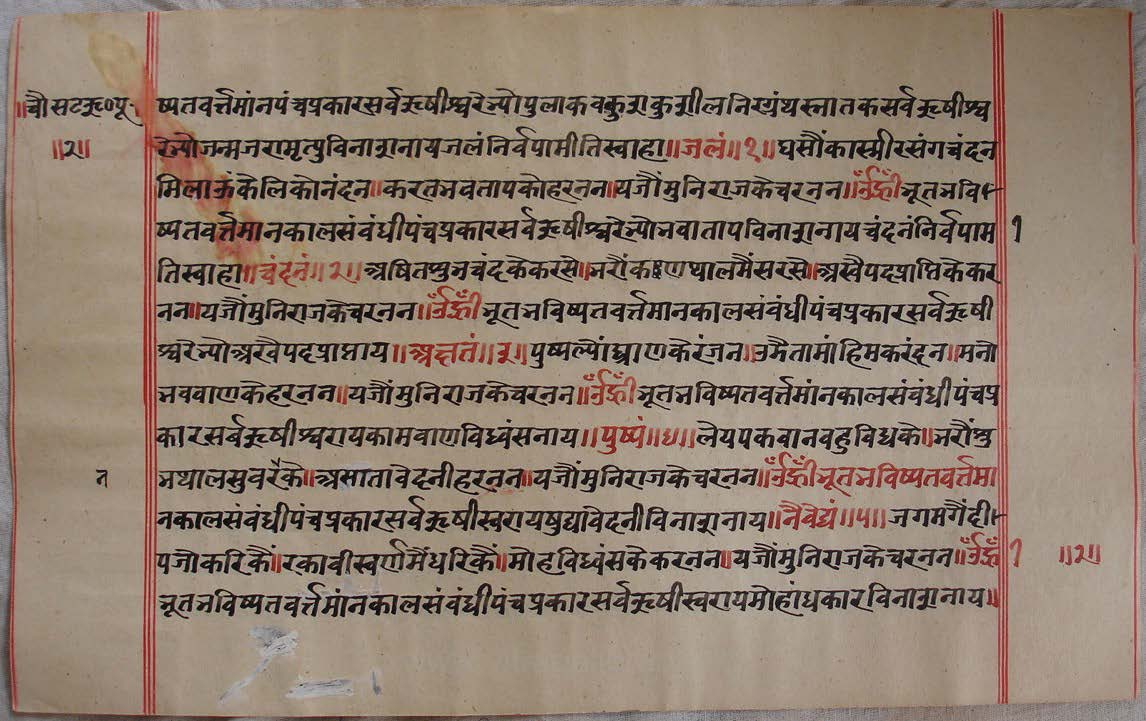 ॥चौसटऋ०पू॰ ष्यतवर्त्तमांनपंचप्रकारसर्वऋषीश्वरेभ्यो पुलाकवकुशकुशीलनिरग्रंथस्नातकसर्वऋषीश्व
॥२॥ रेभ्योजन्मजरामृत्युविनाशनायजलंनिर्वपामीतिस्वाहा॥जलं॥१॥घसौंकास्मीरसंगचंदन
मिलाऊंकेलिकोनंदन॥करतभवतापकोहरनन॥यजौंमुनिराजकेचरनन॥ॐह्रीं भूतभवि
ष्यतवर्त्तमानकालसंबंधीपंचप्रकारसर्वऋषीश्वरेभ्योभवातापविनाशनायचंदनंनिर्वपाम १
तिस्वाहा॥चंदनं॥२॥अषितशुभचंदकेकरसे॥भरौंकणथालमैंसरसे॥अखैपदप्राप्तिकेकर
नन॥यजौंमुनिराजकेचरनन॥ॐह्रीं भूतभविष्यतवर्त्तमानकालसंबंधीपंचप्रकारसर्वऋषी
श्वरेभ्योअखैपदप्राप्ताय॥अक्षतं॥३॥पुष्पल्योंघ्राणकेरंजन॥उमैतामांहिमकरंदन॥मनो
भववाणकेहरनन॥यजौंमुनिराजकेचरनन॥ॐह्रीं भूतभविष्यतवर्त्तमांनकालसंबंधीपंचप्र
कारसर्वऋषीश्वरायकामवाणविध्वंसनाय॥पुष्पं॥४॥लेयपकवानवहुविधके॥भरौंशु
न भथालसुवरकै॥असातावेदनीहरनन॥यजौंमुनिराजकेचरनन॥ॐह्रीं भूतभविष्यतवर्त्तमा
नकालसंबंधीपंचप्रकारसर्वऋषीस्वरायषुधावेदनीविनाशनाय॥नैवेद्यं॥५॥जगमगैंदी
पजोकरिकैं॥रकावीस्वर्णमैंधरिकैं॥मोहविध्वंसकेकरनन॥यजौंमुनिराजकेचरनन॥ॐह्रीं १ ॥२॥
भूतभविष्यतवर्त्तमांनकालसंबंधीपंचप्रकारसर्वऋषीस्वरायमोहांधकारविनाशनाय॥